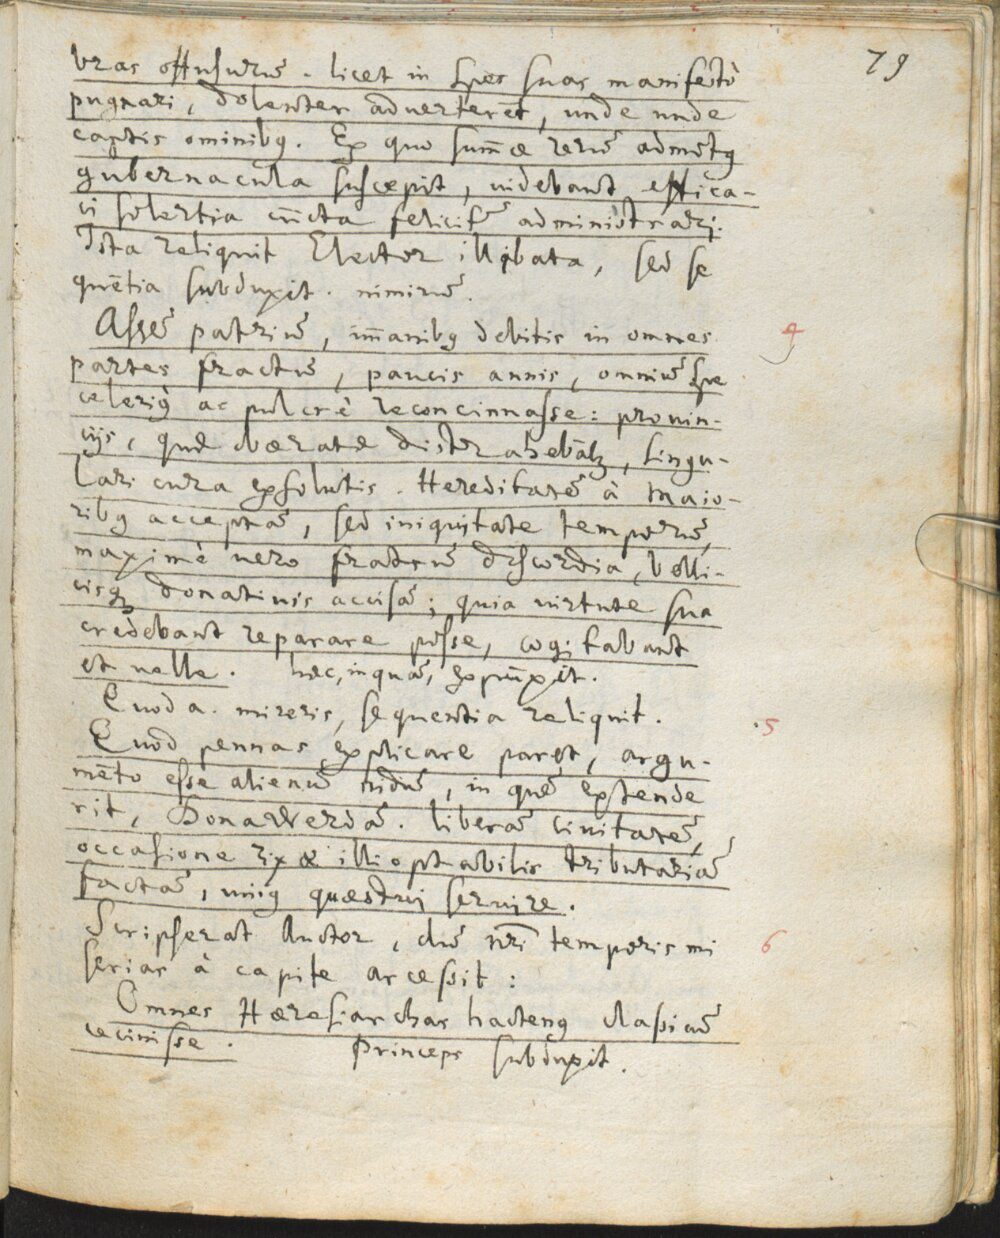 79
bras offusurū. licet in spes suas manifestò
pugnari, dolenter adverteret, unde unde
captis ominibꝯ. Ex quo summæ rerū admotꝯ
gubernacula suscepit, videbant effica-
ci solertia cūcta feliciter administrari.
Ista reliquit Elector illibata, sed se
quētia subduxit. nimirū.
Assē patriū, īmanibꝯ debitis in omnes 4
partes fractū, paucis annis, omniū spe
celeriꝯ ac pulcrè reconcinnasse: provin-
cijs, quæ obæratæ distrahebātꝫ, singu-
lari cura exsolutis. Hereditatē à Maio-
ribꝯ acceptā, sed iniquitate temporū,
maximè vero fratrū discordia, belli-
cisqꝫ donativis accisā; quia virtute sua
credebant reparare posse, cogitabant
et velle. hæc, inquā, expūxit.
Quod a. mireris, sequentia reliquit. 5
Quod pennas explicare paret, argu-
mēto esse alienū nidū, in quē extende
rit, Donawerdā. liberā civitatē,
occasione rixæ illi optabilis tributariā
factā, uniꝯ quæstui servire.
Scripserat Auctor, dū nrī temporis mi 6
serias à capite arcessit:
Omnes Hæresiarchas hactenꝯ classicū
cecinisse. Princeps subduxit.